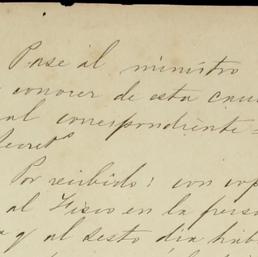 Pase al ministro
conocer de esta
al correspondiente
Secretº
Por recibido; con
al Fisco en la
y al sesto dia